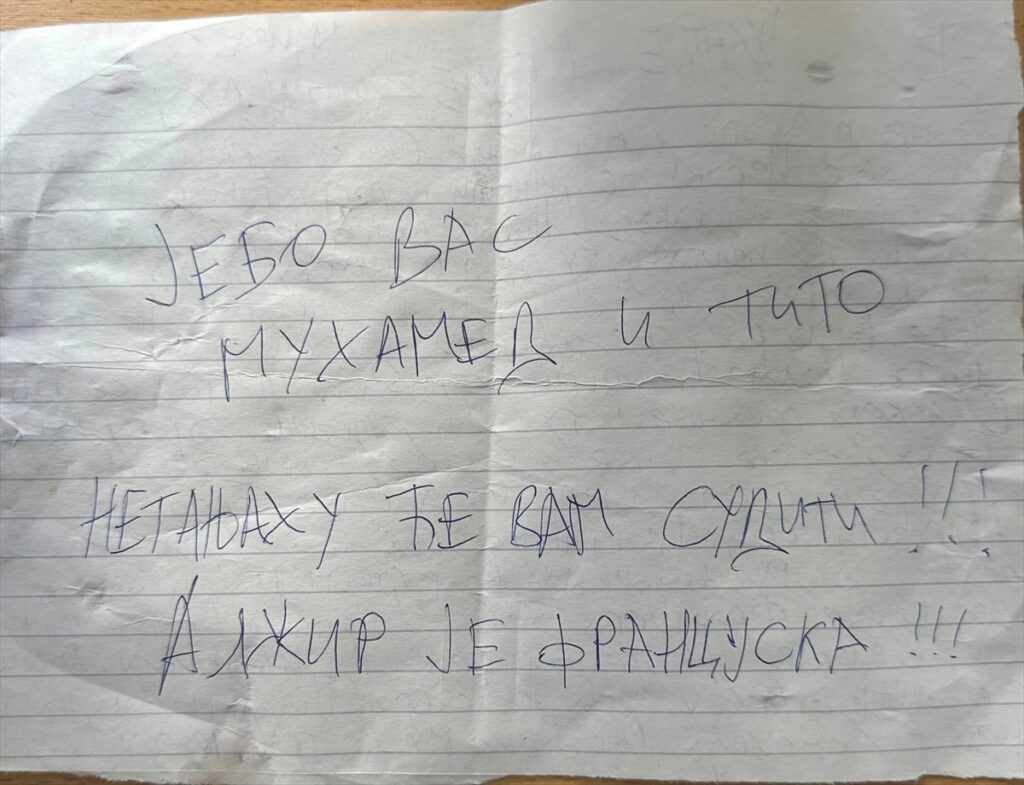 ЈЕБО ВАС
МУХАМЕД И ТИТО
НЕТАЊАХУ ЋЕ ВАМ СУДИТИ !!!
АЛЖИР ЈЕ ФРАНЦУСКА !!!